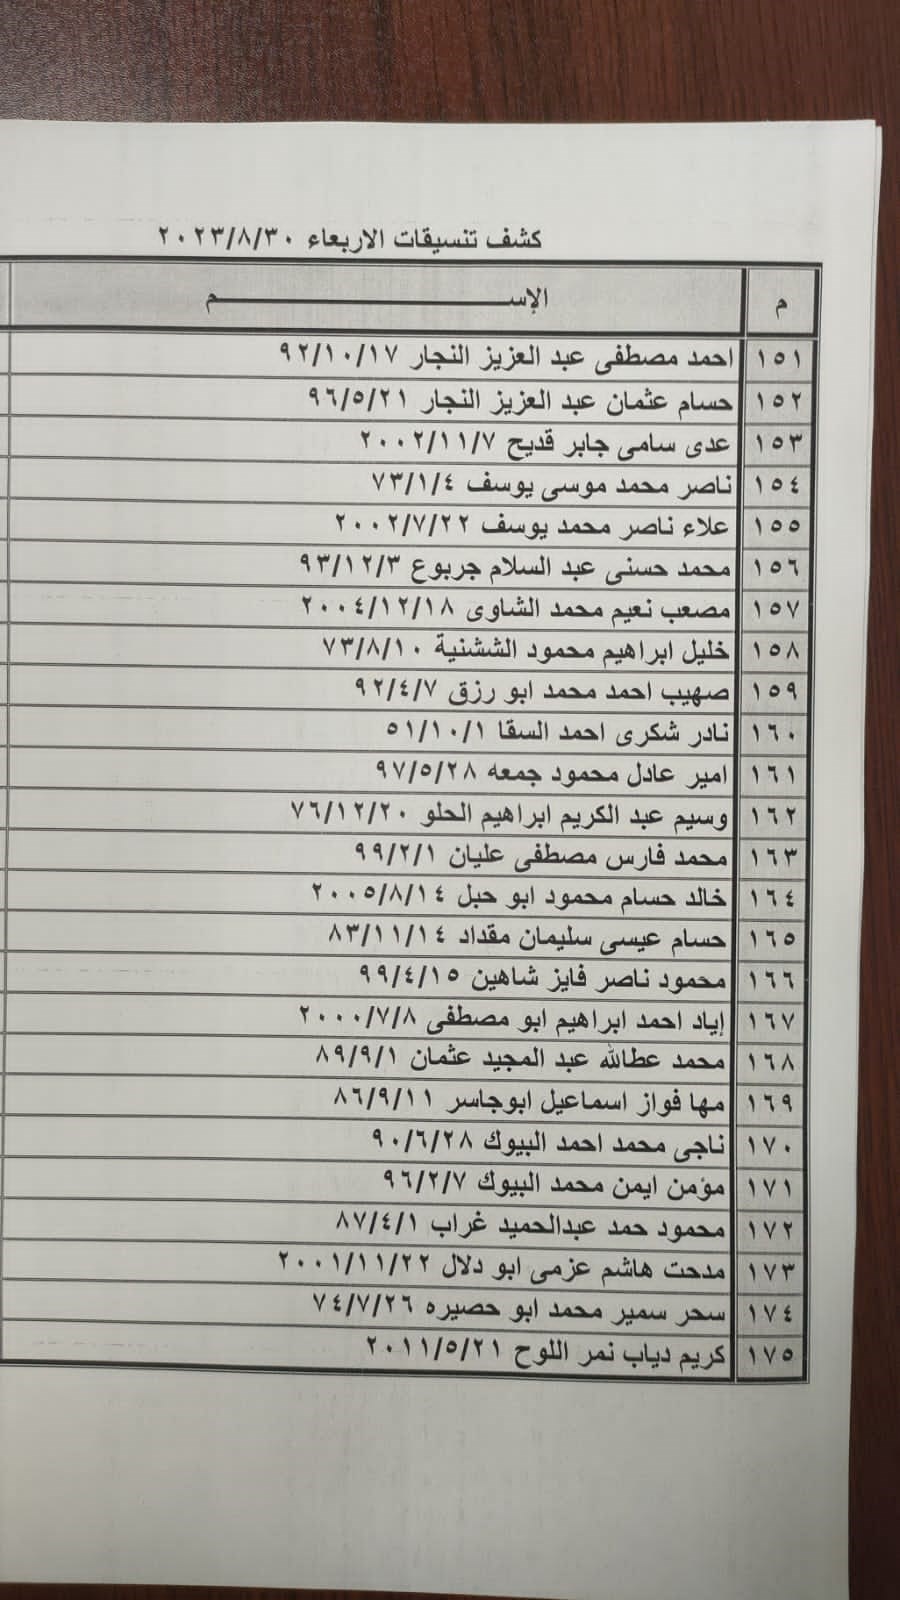 كشف تنسيقات الاربعاء ٢٠٢٣/٨/٣٠
م الإســـــــــــــــــم
١٥١ احمد مصطفى عبد العزيز النجار ٩٢/١٠/١٧
١٥٢ حسام عثمان عبد العزيز النجار ٩٦/٥/٢١
١٥٣ عدى سامى جابر قديح ٢٠٠٢/١١/٧
١٥٤ ناصر محمد موسى يوسف ٧٣/١/٤
١٥٥ علاء ناصر محمد يوسف ٢٠٠٢/٧/٢٢
١٥٦ محمد حسنى عبد السلام جربوع ٩٣/١٢/٣
١٥٧ مصعب نعيم محمد الشاوى ٢٠٠٤/١٢/١٨
١٥٨ خليل ابراهيم محمود الششنية ٧٣/٨/١٠
١٥٩ صهيب احمد محمد ابو رزق ٩٢/٤/٧
١٦٠ نادر شكرى احمد السقا ٥١/١٠/١
١٦١ امير عادل محمود جمعه ٩٧/٥/٢٨
١٦٢ وسيم عبد الكريم ابراهيم الحلو ٧٦/١٢/٢٠
١٦٣ محمد فارس مصطفى عليان ٩٩/٢/١
١٦٤ خالد حسام محمود ابو حبل ٢٠٠٥/٨/١٤
١٦٥ حسام عيسى سليمان مقداد ٨٣/١١/١٤
١٦٦ محمود ناصر فايز شاهين ٩٩/٤/١٥
١٦٧ إياد احمد ابراهيم ابو مصطفى ٢٠٠٠/٧/٨
١٦٨ محمد عطالله عبد المجيد عثمان ٨٩/٩/١
١٦٩ مها فواز اسماعيل ابوجاسر ٨٦/٩/١١
١٧٠ ناجى محمد احمد البيوك ٩٠/٦/٢٨
١٧١ مؤمن ايمن محمد البيوك ٩٦/٢/٧
١٧٢ محمود حمد عبدالحميد غراب ٨٧/٤/١
١٧٣ مدحت هاشم عزمى ابو دلال ٢٠٠١/١١/٢٢
١٧٤ سحر سمير محمد ابو حصيره ٧٤/٧/٢٦
١٧٥ كريم دياب نمر اللوح ٢٠١١/٥/٢١